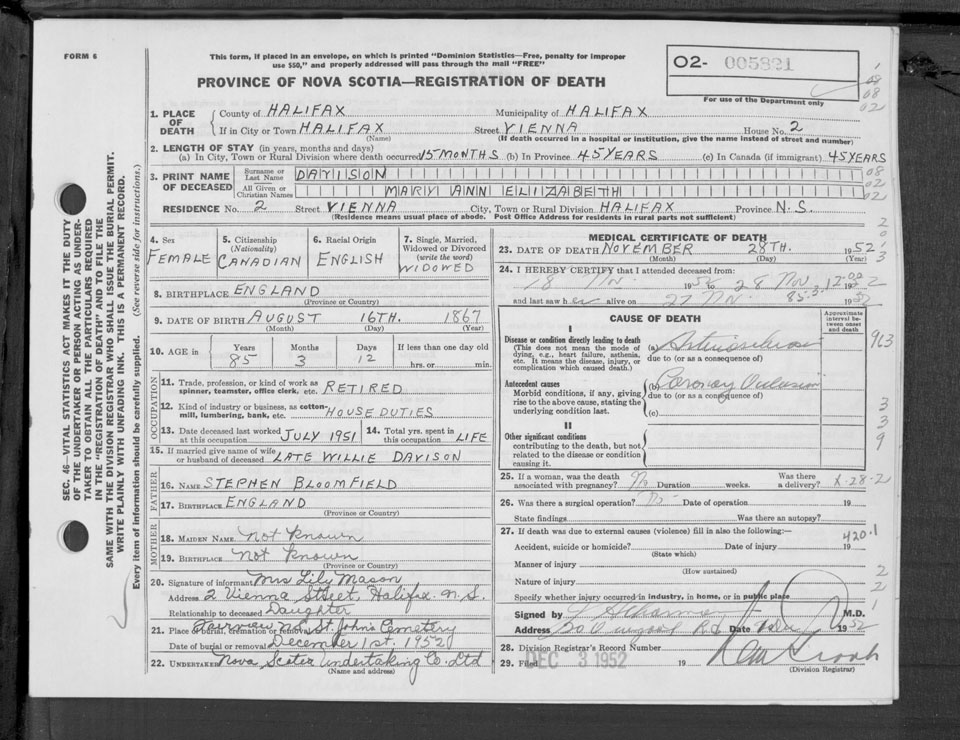 FORM 6
This form, if placed in an envelope, on which is printed "Dominion Statistics—Free, penalty for improper
use $50," and properly addressed will pass through the mail "FREE"
PROVINCE OF NOVA SCOTIA—REGISTRATION OF DEATH
O2- 005821
For use of the Department only
1. PLACE OF DEATH
County of HALIFAX Municipality of HALIFAX
If in City or Town HALIFAX Street VIENNA House No. 2
(Name) (If death occurred in a hospital or institution, give the name instead of street and number)
2. LENGTH OF STAY (in years, months and days)
(a) In City, Town or Rural Division where death occurred 15 MONTHS (b) In Province 45 YEARS (c) In Canada (if immigrant) 45 YEARS
3. PRINT NAME OF DECEASED
Surname or Last Name DAVISON
All Given or Christian Names MARY ANN ELIZABETH
RESIDENCE No. 2 Street VIENNA City, Town or Rural Division HALIFAX Province N.S.
(Residence means usual place of abode. Post Office Address for residents in rural parts not sufficient)
4. Sex FEMALE
5. Citizenship (Nationality) CANADIAN
6. Racial Origin ENGLISH
7. Single, Married, Widowed or Divorced (write the word) WIDOWED
8. BIRTHPLACE ENGLAND
(Province or Country)
9. DATE OF BIRTH AUGUST 16TH. 1867
(Month) (Day) (Year)
10. AGE in Years 85 Months 3 Days 12 If less than one day old hrs. or min.
OCCUPATION
11. Trade, profession, or kind of work as spinner, teamster, office clerk, etc. RETIRED
12. Kind of industry or business, as cotton mill, lumbering, bank, etc. HOUSE DUTIES
13. Date deceased last worked at this occupation JULY 1951
14. Total yrs. spent in this occupation LIFE
15. If married give name of wife or husband of deceased LATE WILLIE DAVISON
FATHER
16. NAME STEPHEN BLOOMFIELD
17. BIRTHPLACE ENGLAND
(Province or Country)
MOTHER
18. MAIDEN NAME Not Known
19. BIRTHPLACE Not Known
(Province or Country)
20. Signature of informant Mrs Lily Mason
Address 2 Vienna Street, Halifax. N.S.
Relationship to deceased Daughter
21. Place of burial, cremation or removal Fairview N.S. St. John's Cemetery
Date of burial or removal December 1st. 1952
22. UNDERTAKER Nova Scotia Undertaking Co. Ltd
(Name and address)
MEDICAL CERTIFICATE OF DEATH
23. DATE OF DEATH NOVEMBER 28TH. 1952
(Month) (Day) (Year)
24. I HEREBY CERTIFY that I attended deceased from:
18 Nov 1952 to 28 Nov 1952
and last saw her alive on 27 Nov. 1952
85.3.12.00
CAUSE OF DEATH
Approximate interval between onset and death
I
Disease or condition directly leading to death
(This does not mean the mode of dying, e.g., heart failure, asthenia, etc. It means the disease, injury, or complication which caused death.)
(a)
due to (or as a consequence of)
Antecedent causes
Morbid conditions, if any, giving rise to the above cause, stating the underlying condition last.
(b) Coronary Occlusion
due to (or as a consequence of)
(c)
II
Other significant conditions
contributing to the death, but not related to the disease or condition causing it.
25. If a woman, was the death associated with pregnancy? No Duration weeks. Was there a delivery?
26. Was there a surgical operation? No Date of operation 19
State findings Was there an autopsy?
27. If death was due to external causes (violence) fill in also the following:—
420.1
Accident, suicide or homicide? Date of injury 19
(State which)
Manner of injury
(How sustained)
Nature of injury
Specify whether injury occurred in industry, in home, or in public place
Signed by M.D.
Address Date 1952
28. Division Registrar's Record Number
29. Filed DEC 3 1952 19
(Division Registrar)
SEC. 46—VITAL STATISTICS ACT MAKES IT THE DUTY
OF THE UNDERTAKER OR PERSON ACTING AS UNDER-
TAKER TO OBTAIN ALL THE PARTICULARS REQUIRED
IN THE "REGISTRATION OF DEATH" AND TO FILE THE
SAME WITH THE DIVISION REGISTRAR WHO SHALL ISSUE THE BURIAL PERMIT.
WRITE PLAINLY WITH UNFADING INK. THIS IS A PERMANENT RECORD.
Every item of information should be carefully supplied. (See reverse side for instructions.)